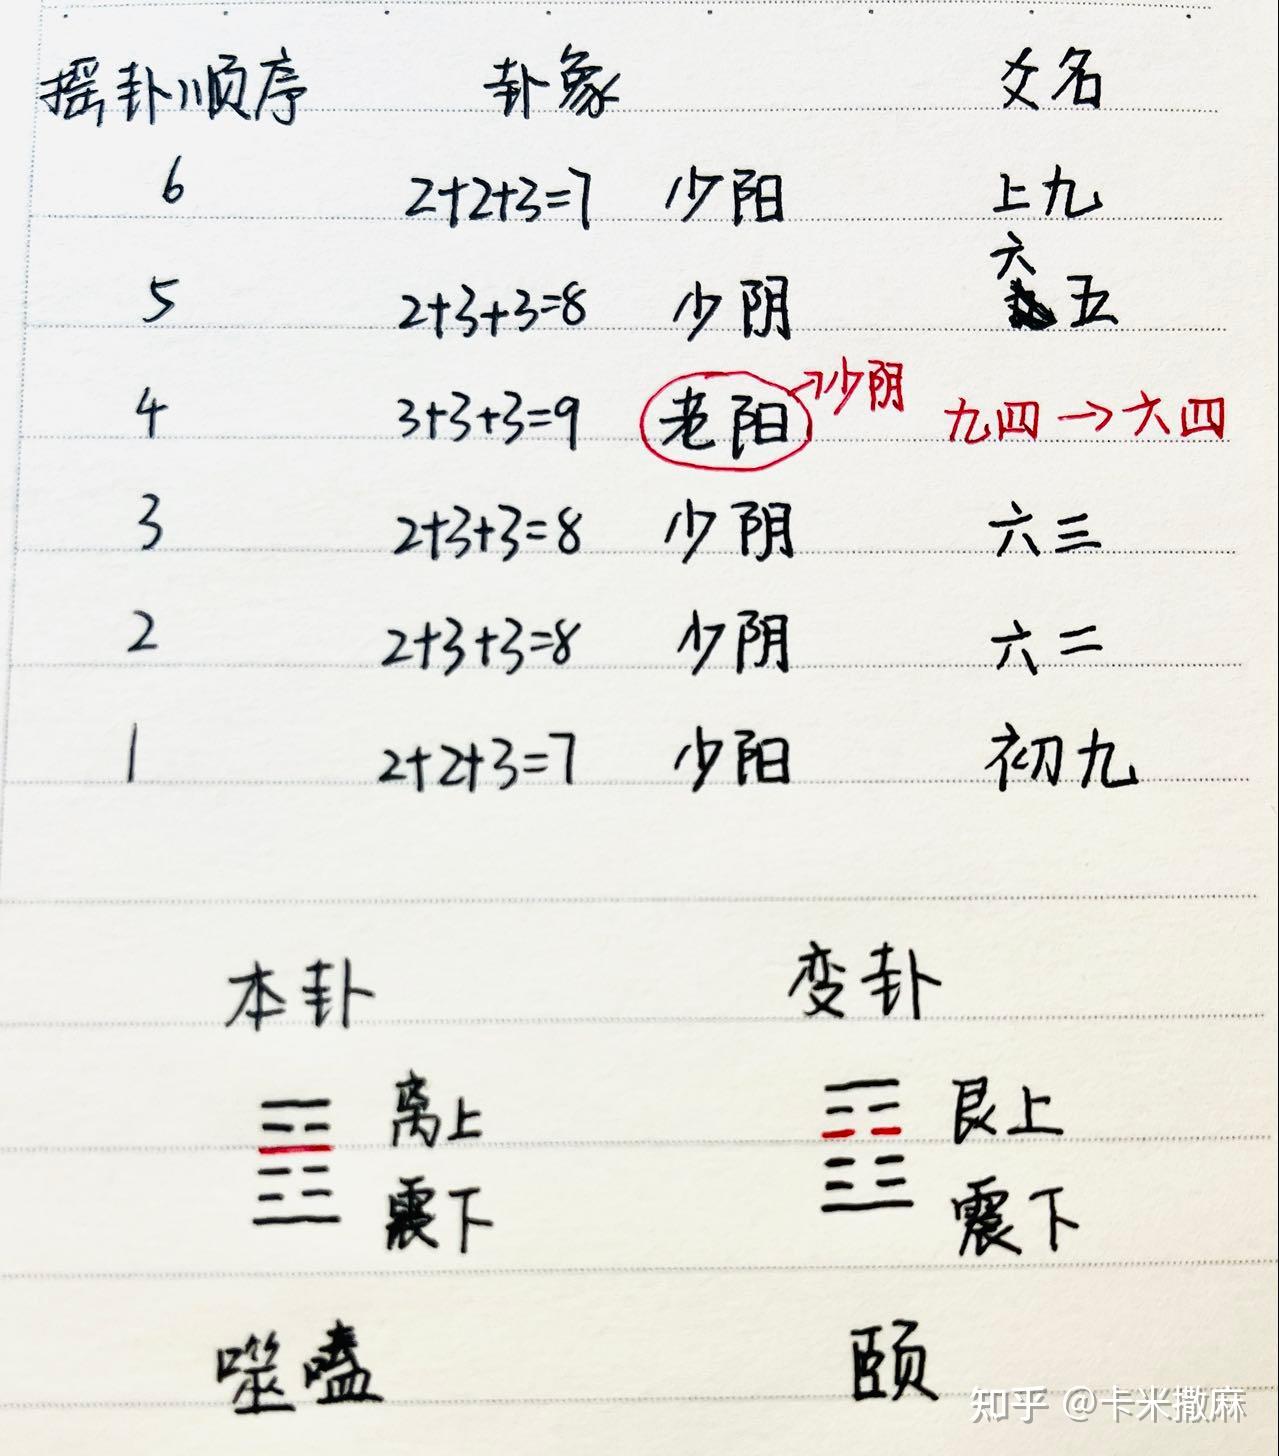 摇卦顺序 卦象 爻名
6 2+2+3=7 少阳 上九
5 2+3+3=8 少阴 六五
4 3+3+3=9 老阳→少阴 九四→六四
3 2+3+3=8 少阴 六三
2 2+3+3=8 少阴 六二
1 2+2+3=7 少阳 初九
本卦 变卦
离上 艮上
震下 震下
噬嗑 颐
知乎 @卡米撒麻